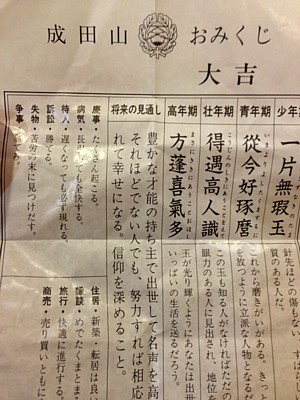 成田山 おみくじ
大吉
少年
一片無瑕玉
針先ほどの傷もな
質のある人だ。
青年期
從今好琢磨
これから磨きがいがある。きっと
を放つように立派な人物となるだ
壮年期
得遇高人識
この玉も知る人がなければただの
眼力のある人に見出され、地位を
高年期
方逢喜氣多
玉が光り輝くようにあなたは出世
いっぱいの生活を送るだろう。
将来の見通し
豊かな才能の持ち主で出世して名声を高
それほどでない人でも、努力すれば相応
れて幸せになる。信仰を深めること。
慶事・たくさん起こる。
病気・長引いても全快する。
待人・遅くなっても必ず現れる。
訴訟・勝てる。
失物・苦労の末に見つけだす。
争事・
住居・新築・転居は良い
縁談・めでたくまとま
旅行・快適に進行する。
商売・売り買いともに